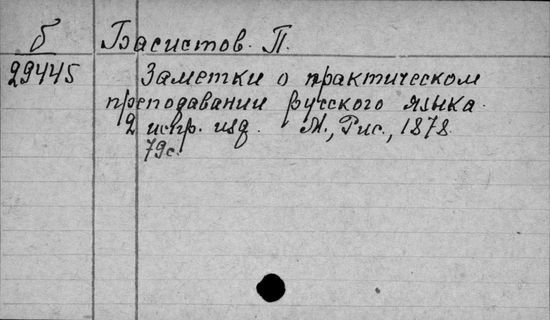 б Басистов. П.
29445 Заметки о практическом
преподавании русского языка.
2 испр. изд. М., Рис., 1878.
79с.